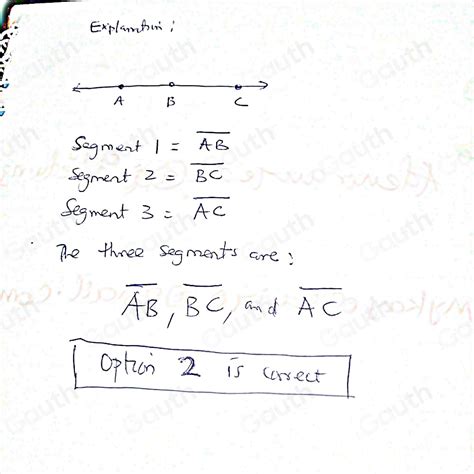 Explanation :
A B C
Segment 1 = A̅B̅
Segment 2 = B̅C̅
Segment 3 = A̅C̅
The three segments are :
A̅B̅, B̅C̅, and A̅C̅
Option 2 is correct
Gauth